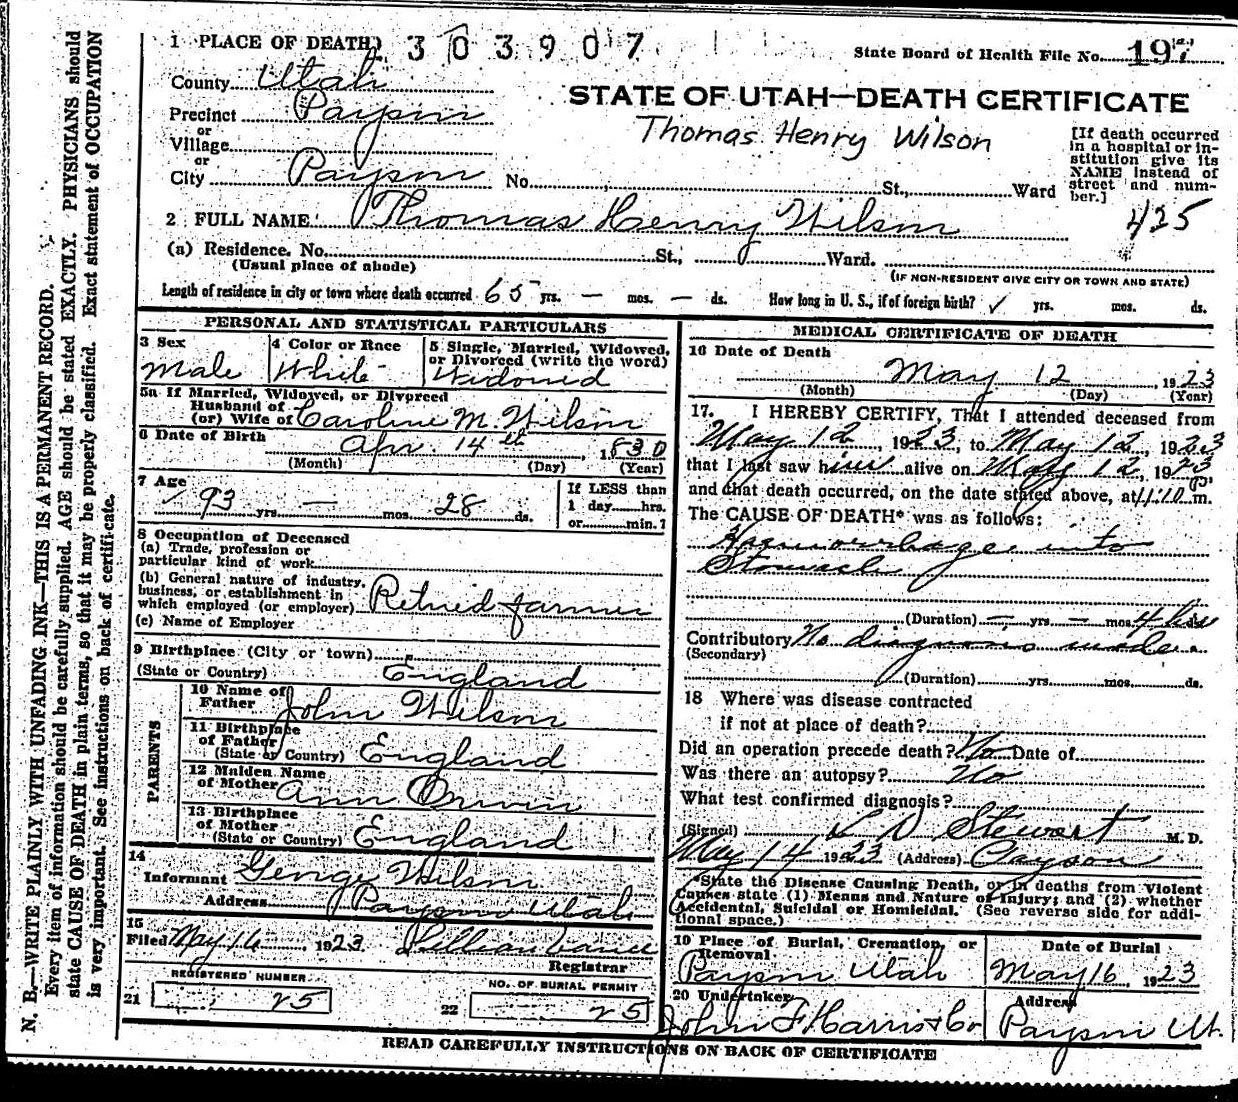 N. B.—WRITE PLAINLY WITH UNFADING INK—THIS IS A PERMANENT RECORD.
Every item of information should be carefully supplied. AGE should be stated EXACTLY. PHYSICIANS should
state CAUSE OF DEATH in plain terms, so that it may be properly classified. Exact statement of OCCUPATION
is very important. See instructions on back of certificate.
1 PLACE OF DEATH 303907
State Board of Health File No. 197
County Utah
STATE OF UTAH—DEATH CERTIFICATE
Precinct Payson
Thomas Henry Wilson
or
Village
or
City Payson No. , St., Ward
[If death occurred
in a hospital or in-
stitution give its
NAME instead of
street and num-
ber.]
425
2 FULL NAME Thomas Henry Wilson
(a) Residence. No. St., Ward.
(Usual place of abode) (IF NON-RESIDENT GIVE CITY OR TOWN AND STATE)
Length of residence in city or town where death occurred 65 yrs. — mos. — ds. How long in U. S., if of foreign birth? ✓ yrs. mos. ds.
PERSONAL AND STATISTICAL PARTICULARS
3 Sex
Male
4 Color or Race
White
5 Single, Married, Widowed,
or Divorced (write the word)
Widowed
5a If Married, Widowed, or Divorced
Husband of
(or) Wife of Caroline M. Wilson
6 Date of Birth Apr. 14th, 1830
(Month) (Day) (Year)
7 Age
93 yrs. — mos. 28 ds.
If LESS than
1 day hrs.
or min.?
8 Occupation of Deceased
(a) Trade, profession or
particular kind of work
(b) General nature of industry,
business, or establishment in
which employed (or employer) Retired farmer
(c) Name of Employer
9 Birthplace (City or town)
(State or Country) England
PARENTS
10 Name of
Father John Wilson
11 Birthplace
of Father
(State or Country) England
12 Maiden Name
of Mother Ann
13 Birthplace
of Mother
(State or Country) England
14
Informant George Wilson
Address Payson Utah
15
Filed May 16 1923. Lillian
Registrar
REGISTERED NUMBER
21 25
NO. OF BURIAL PERMIT
22 25
MEDICAL CERTIFICATE OF DEATH
16 Date of Death
May 12, 1923
(Month) (Day) (Year)
17. I HEREBY CERTIFY, That I attended deceased from
May 12, 1923, to May 12, 1923
that I last saw him alive on May 12, 1923
and that death occurred, on the date stated above, at 11:10 p. m.
The CAUSE OF DEATH* was as follows:
Haemorrhage into
Stomach
(Duration) — yrs. — mos. 4 hrs ds.
Contributory No diagnosis made.
(Secondary)
(Duration) yrs. mos. ds.
18 Where was disease contracted
if not at place of death?
Did an operation precede death? No Date of
Was there an autopsy? No
What test confirmed diagnosis?
(Signed) L D Stewart M. D.
May 14 1923 (Address) Payson
*State the Disease Causing Death, or in deaths from Violent
Causes state (1) Means and Nature of Injury; and (2) whether
Accidental, Suicidal or Homicidal. (See reverse side for addi-
tional space.)
19 Place of Burial, Cremation, or
Removal
Payson Utah
Date of Burial
May 16, 1923
20 Undertaker
John F Harris & Co
Address
Payson Ut.
READ CAREFULLY INSTRUCTIONS ON BACK OF CERTIFICATE